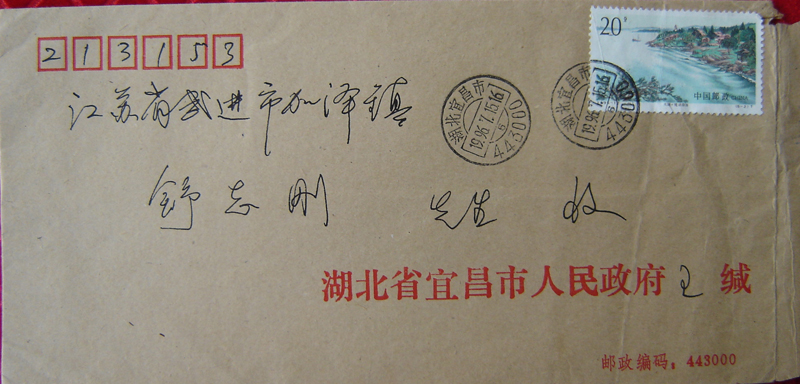 213153
20分
中国邮政
江苏省武进市加泽镇
湖北宜昌市
1996.7.15.16
443000
湖北宜昌市
1996.7.15.16
443000
舒志刚 先生 收
湖北省宜昌市人民政府 王 缄
邮政编码：443000